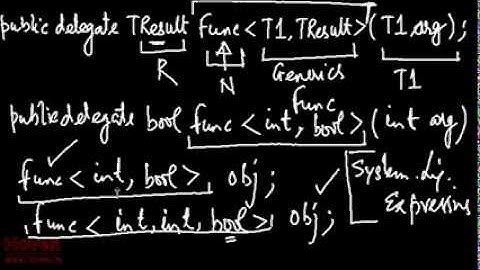 public delegate TResult func<T1,TResult>(T1 arg);
R N Generics T1
func
public delegate bool func<int, bool>(int arg)
func<int, bool> obj;
func<int,int,bool> obj;
System.
Expressins